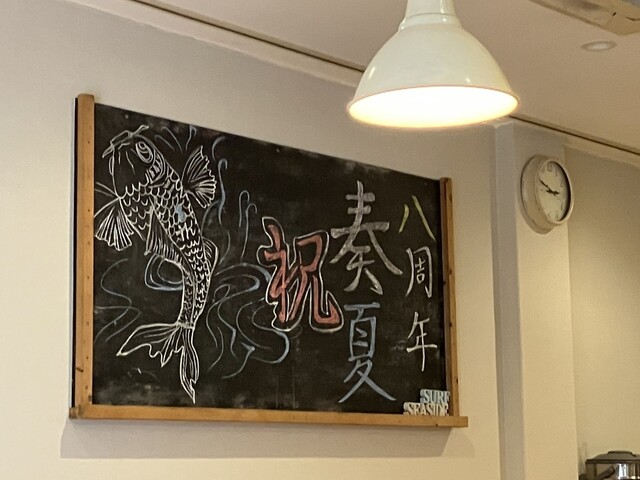 八周年
奏夏
祝
SURF
SEASIDE